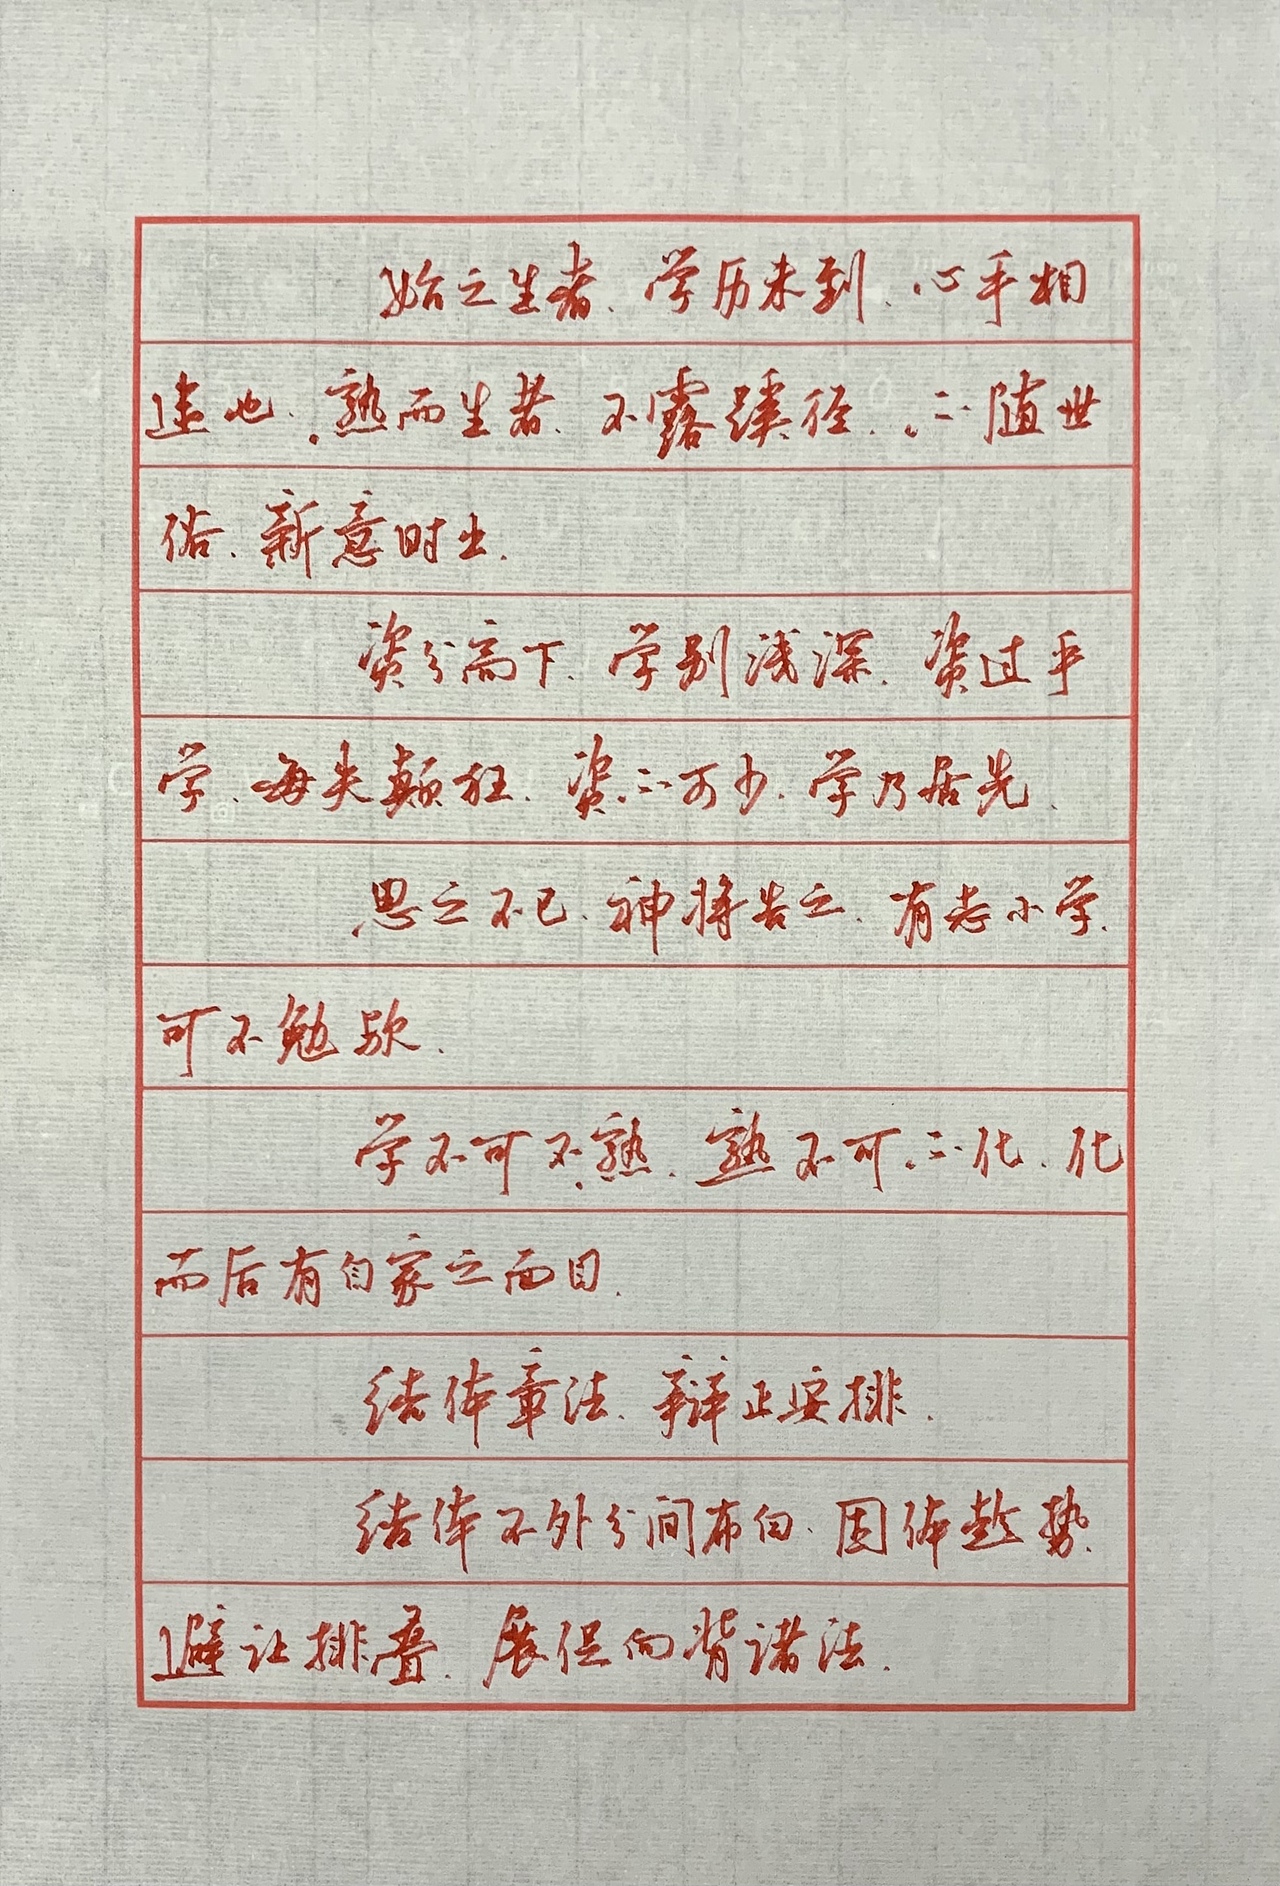 始之生者、学历未到、心手相
违也、熟而生者、不露蹊径、不随世
俗、新意时出、
资分高下、学别浅深、资过乎
学、每失颠狂、资不可少、学乃居先、
思之不已、神将告之、有志小学、
可不勉欤、
学不可不熟、熟不可不化、化
而后有自家之面目、
结体章法、辩正安排、
结体不外分间布白、因体趁势、
避让排叠、展促向背诸法、